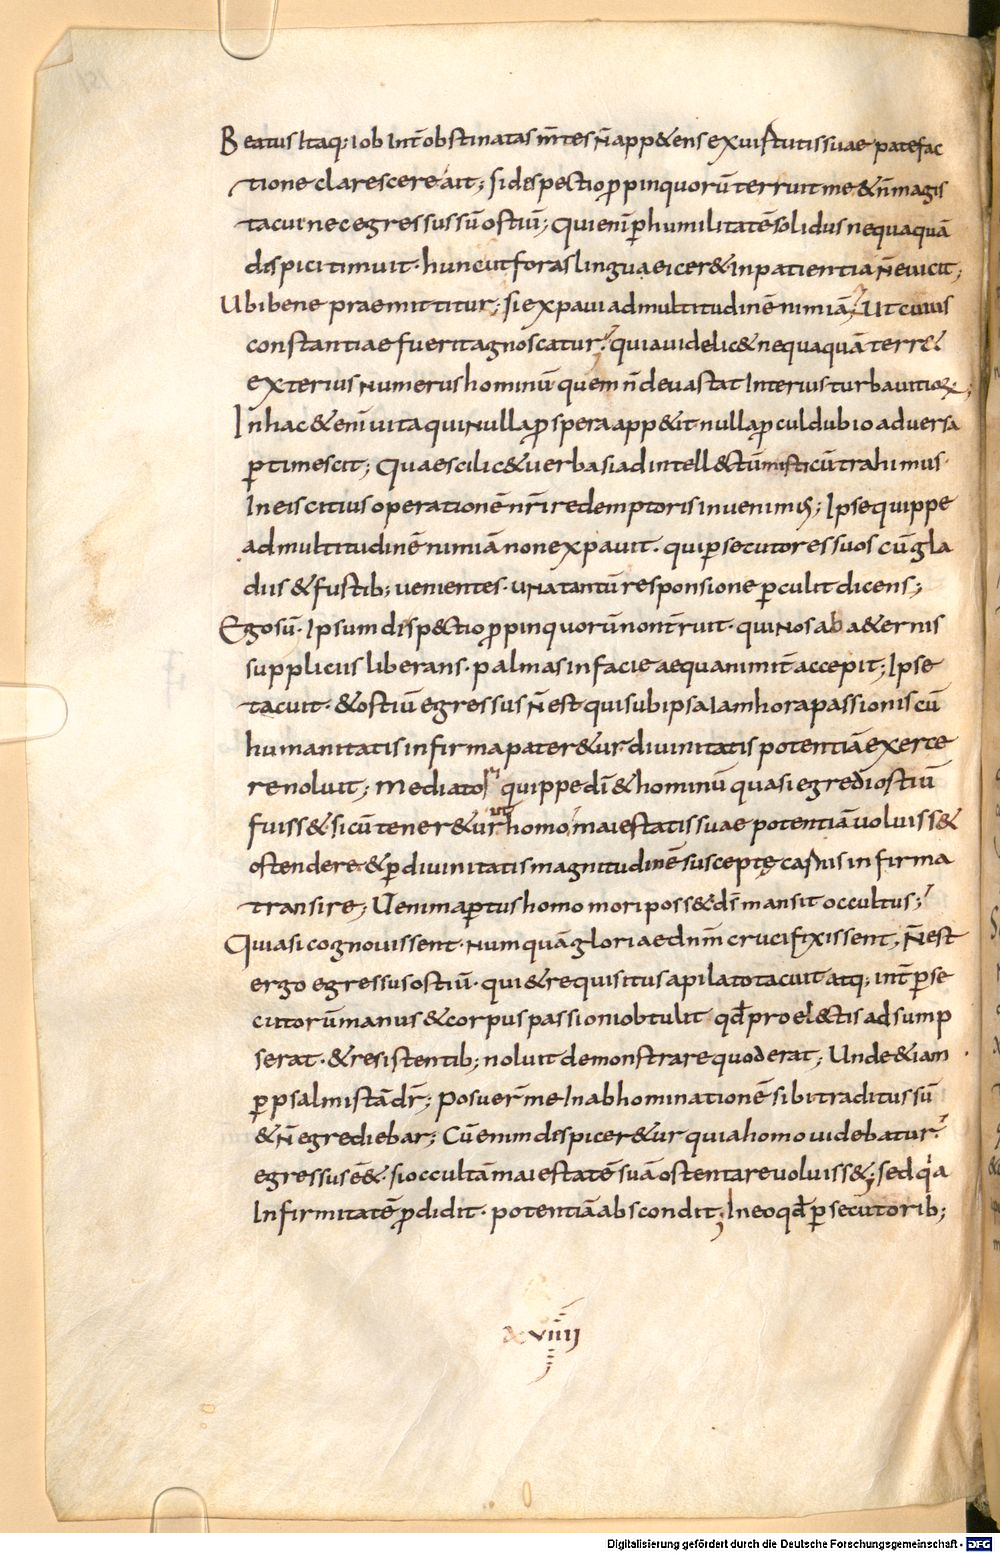 Beatus Itaq; Iob Int̄ obstinatas m̄tes n̄ app&ens ex uirtutis suae patefac
tione clarescere ait; si despectio ꝓpinquorū terruit me & n̄ magis
tacui nec egressus sū ostiū; Qui eni ꝑ humilitatē solidus nequaquā
dispici timuit· hunc ut foras lingua eicer& Inpatientia n̄ euicit;
Ubi bene praemittitur; si expaui ad multitudinē nimiā; Ut cuius
constantiae fuerit agnoscatur· quia uidelic& nequaquā terre&
exterius numerus hominū quem n̄ deuastat Interius turba uitioꝝ;
In hac & eni uita qui nulla ꝓspera app&it nulla ꝓculdubio aduersa
ꝑtimescit; Quae scilic& uerba si ad intell&tū misticū trahimus·
In eis citius operationē nr̄i redemptoris inuenimus; Ipse quippe
ad multitudinē nimiā non expauit· qui ꝑsecutores suos cū gla
dus & fustib; uenientes· una tantū responsione ꝑculit dicens;
Ego sū· Ipsum disp&tio ꝓpinquorū non t̄ruit· qui nos ab a&ernis
suppliciis liberans· palmas in facie aequanimit̄ accepit; Ipse
tacuit· & ostiū egressus n̄ est qui sub ipsa Iam hora passionis cū
humanitatis infirma pater&ur· diuinitatis potentiā exerce
re noluit; Mediatori quippe dī & hominū quasi egredi ostiū
fuiss&· si cū tener&ur ut homo maiestatis suae potentiā uoluiss&
ostendere & ꝑ diuinitatis magnitudinē susceptę carnis infirma
transire; Ueni ꝑtus homo mori poss& ds̄ mansit occultus;
Quia si cognouissent· numquā gloriae dn̄m crucifixissent; N̄ est
ergo egressus ostiū· qui & requisitus a pilato tacuit atq; int̄ ꝑse
cutorū manus & corpus passioni obtulit qd̄ pro el&tis adsump
serat· & resistentib; noluit demonstrare quod erat; Unde & iam
ꝑ psalmistā dr̄; Posuer̄ me In abhominationē sibi traditus sū
& n̄ egrediebar; Cū enim dispicer&ur quia homo uidebatur·
egressus ē&· si occultā maiestatē suā ostentare uoluiss&; sed q̇a
Infirmitatē ꝓdidit· potentiā abscondit; In eo qd̄ ꝑsecutorib;
xviiii
Digitalisierung gefördert durch die Deutsche Forschungsgemeinschaft - DFG